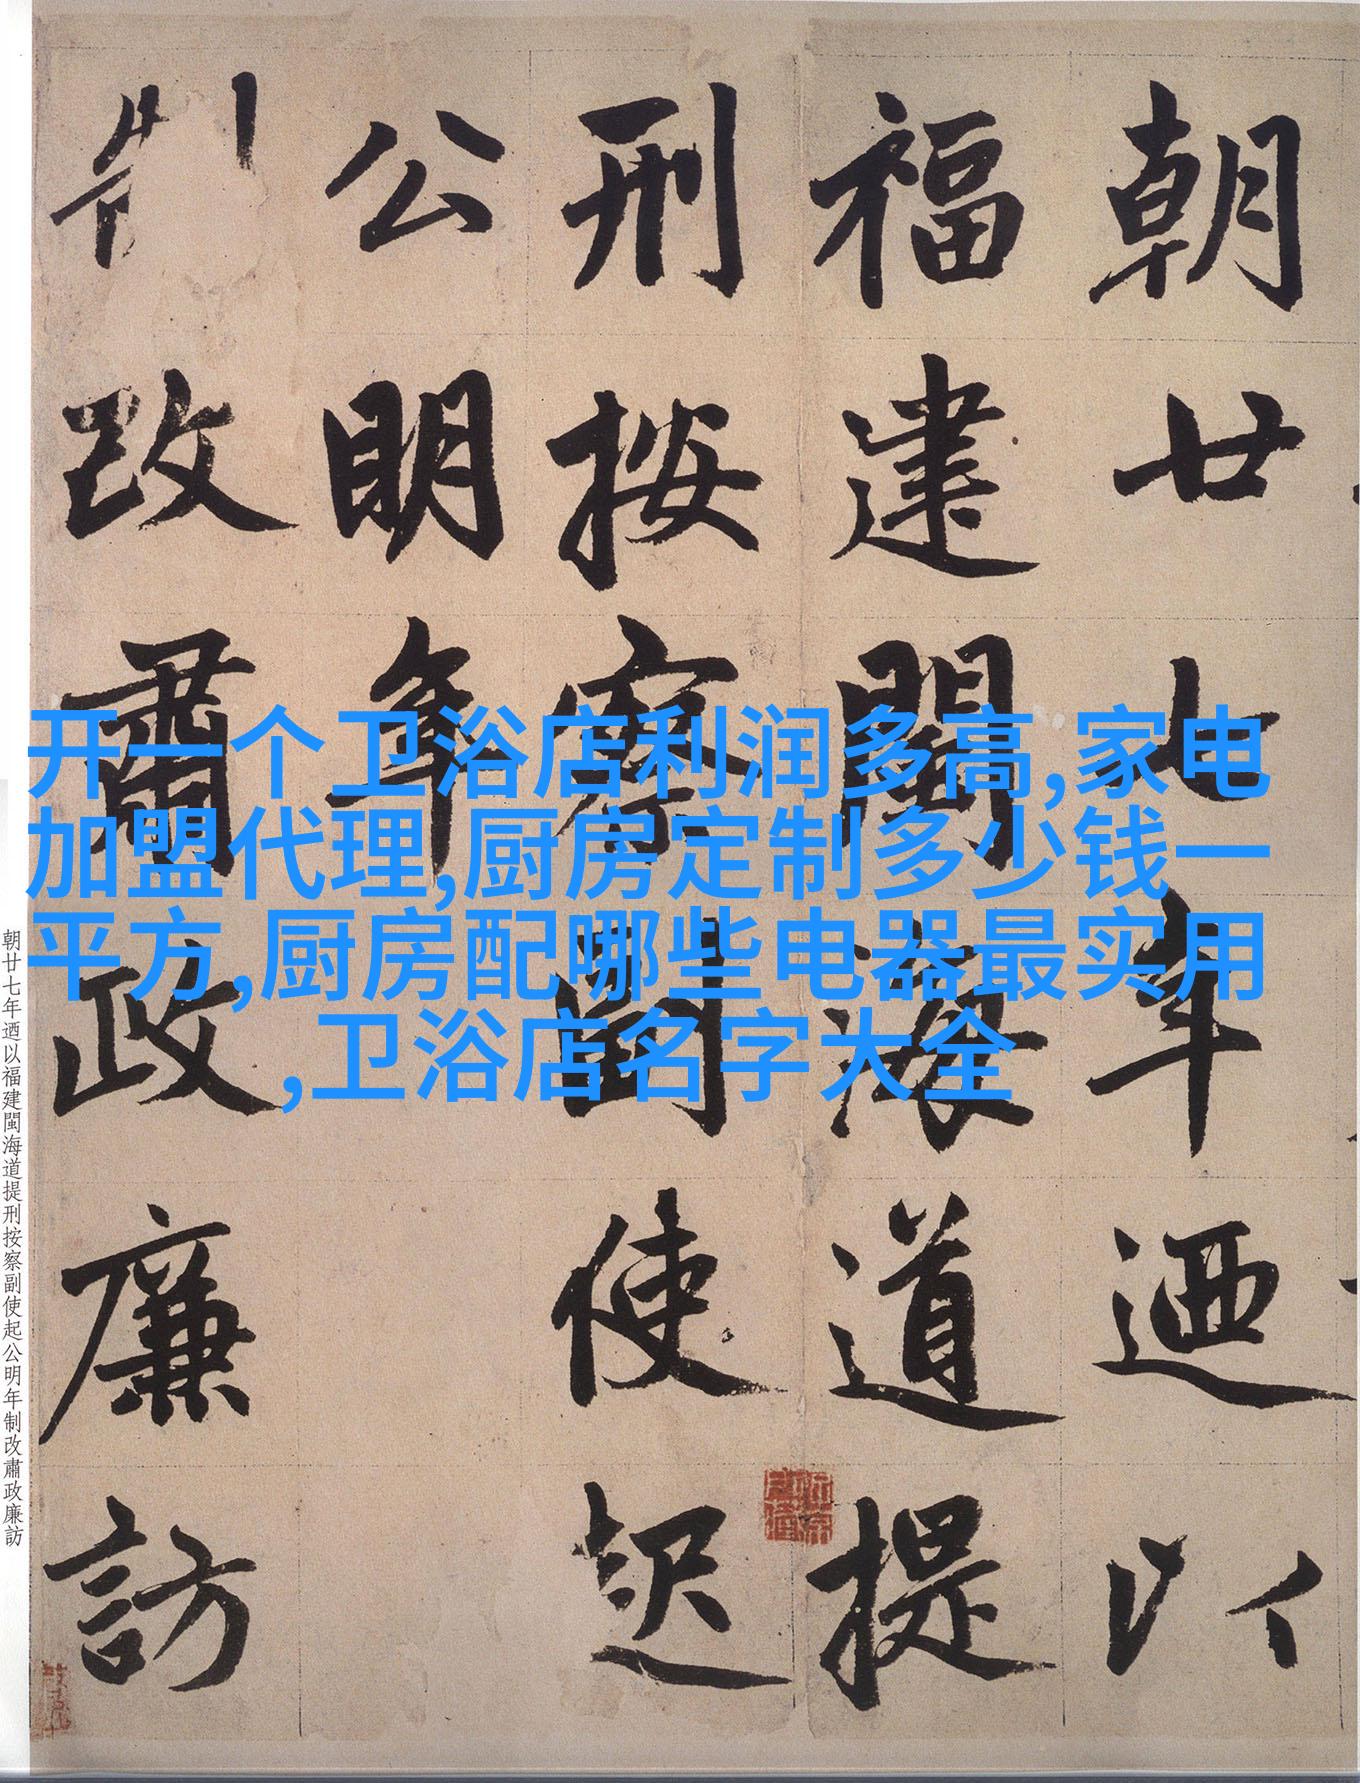 朝廿七年迺以
福建閩海道提
刑按察副使起
公明年
制改肅政廉訪
开一个卫浴店利润多高,家电
加盟代理,厨房定制多少钱一
平方,厨房配哪些电器最实用
,卫浴店名字大全
朝廿七年迺以福建閩海道提刑按察副使起公明年制改肅政廉訪